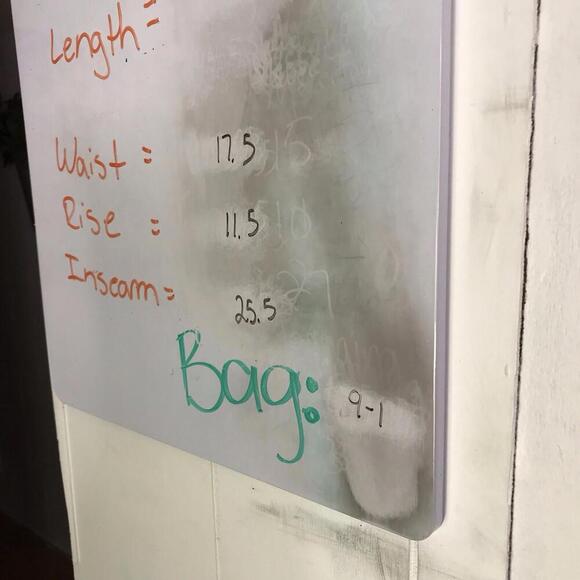 Length =
Waist = 17.5
Rise = 11.5
Inseam = 25.5
Bag: 9-1